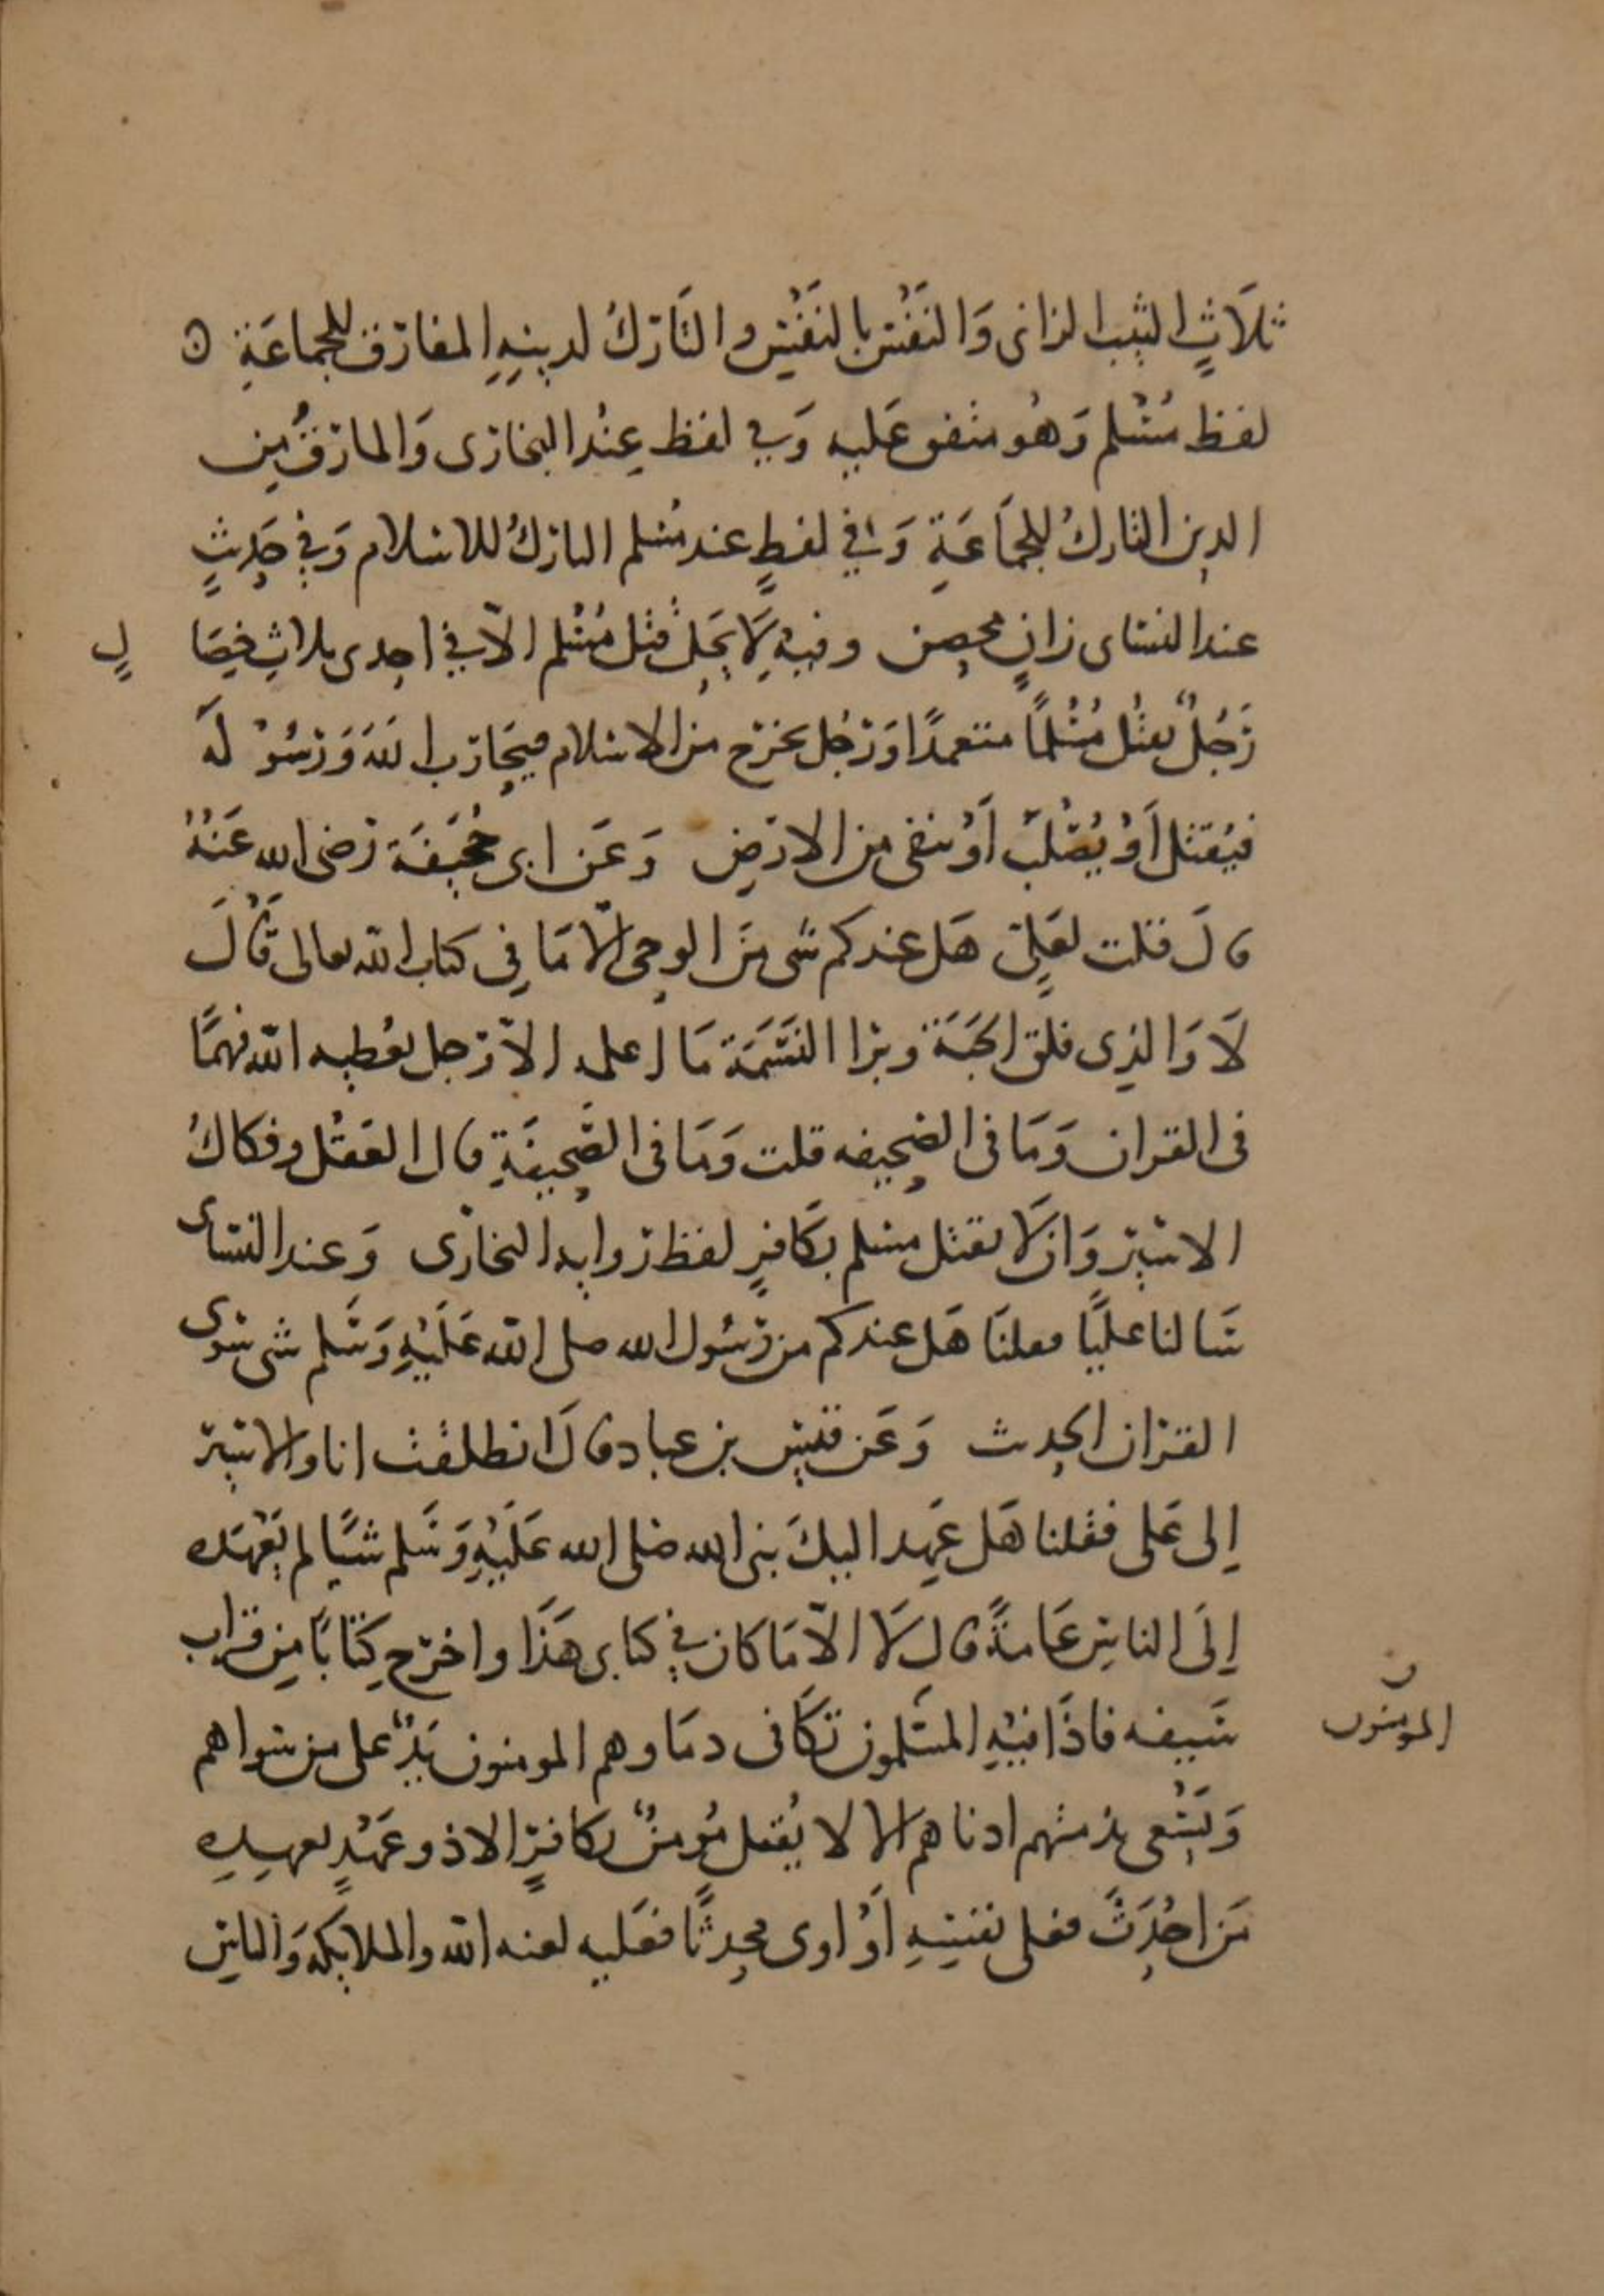 ثلاثٍ الثيب الزانى وَالنَفْس بالنَفْسِ والتَارك لدينِهِ المفارق للجماعَةِ ه
لفظ مُسْلم وَهُو متفق عَليه وَفي لفظ عِنْد البخارى وَالمارقُ مِن
الدين التارك للجمَاعَةِ وَفي لفظٍ عند مُسلم التارك للاسلام وَفي حَدِيثٍ
عند النساى زانٍ محصن وفيه لَا يَحِل قتل مُسْلم الاّ في احدى ثلاثِ خِصَا لٍ
رَجُلٌ يقتُل مُسْلماً متعمدًا وَرَجُل يخرج من الاسلام فيحَارب اللهَ وَرسُولَهُ
فيُقتل أوْ يُصْلَبْ أوْ ينفى من الارضِ وَعَن ابى جُحَيفَة رضى الله عَنْهُ
قالَ قلت لعَلِىّ هَل عندكم شى مِنَ الوحى الاّ مَا فِى كتاب الله تعالى قَالَ
لَا وَالذِى فلق الحَبَةَ وبرا النَسَمَة مَا اعلمه الاّ رجل يعُطيه الله فهمًا
فى القران وَمَا فى الصحيفه قلت وَمَا فى الصَّحِيفَةِ قال العَقْل وفكاكُ
الاسير وَان لَا يقتل مسلم بكَافِرٍ لفظ رواية البخارى وَعند النساى
سَالنا عليًا فقلنَا هَل عندكم من رسُول الله صلى الله عَلَيْهِ وَسَلم شى سوى
القران الحديث وَعَن قيس بن عباد قالَ انطلقت انا والاشتر
إلى عَلى فقلنا هَل عَهِد اليكَ نبى الله صَلى الله عَلَيْهِ وَسَلم شيًا لم يَعْهَده
إلَى الناسِ عَامةً قال لَا الاّ مَا كان في كتابى هَذَا واخرج كِتَابًا مِن قراب
سَيفه فاذَا فيْهِ المسْلمون تكَافى دمَاوهم المومنون يَدٌ على من سواهم
المومنون ن
وَيَسْعى بذمتهم ادناهم الا لا يُقتل مُومِنٌ بكافرٍ الا ذو عَهْدٍ بعهدِهِ
مَن احْدَثَ فعلى نفسِهِ أوْ اوى محدِثًا فعَليه لعنه الله والملايكه وَالناسِ